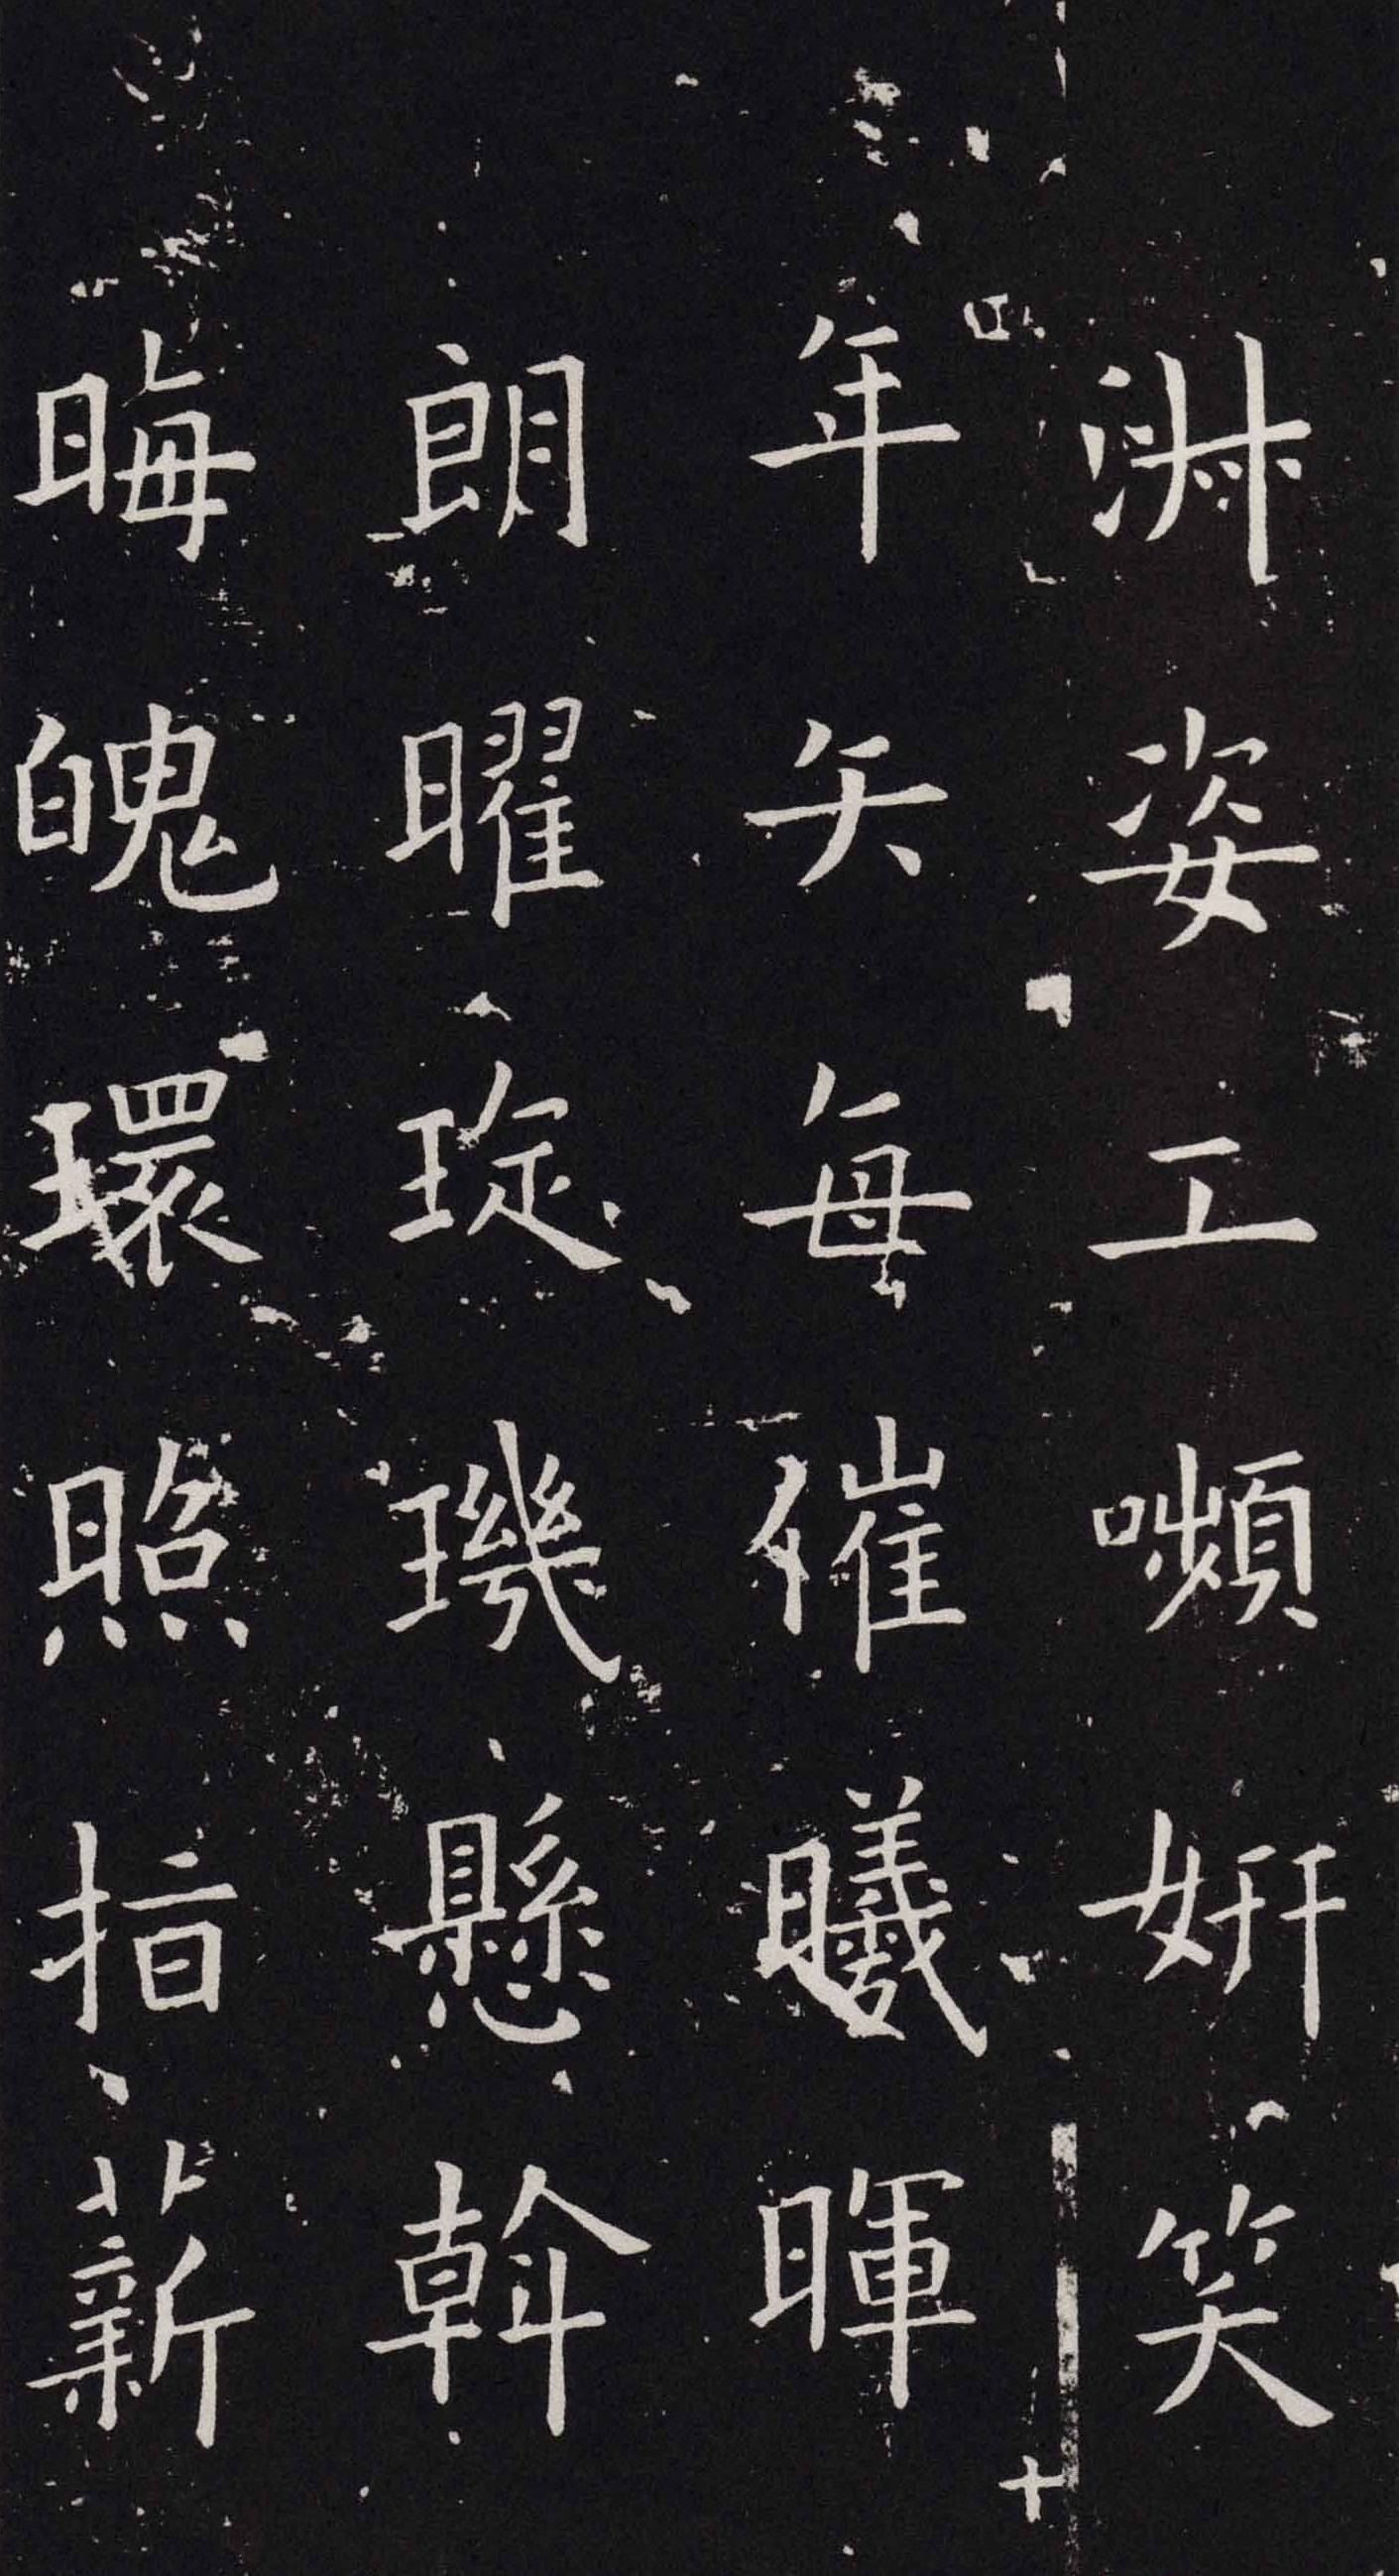 淋姿工嚬妍笑
年矢每催曦暉
朗曜琁璣懸斡
晦魄環照指薪